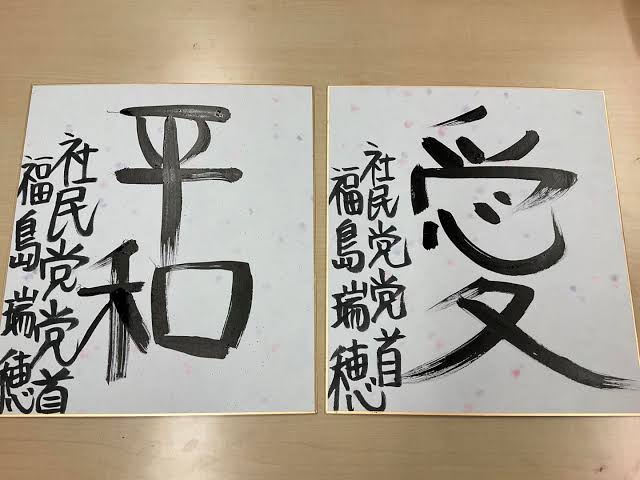 愛
社民党党首
福島瑞穂
平和
社民党党首
福島瑞穂